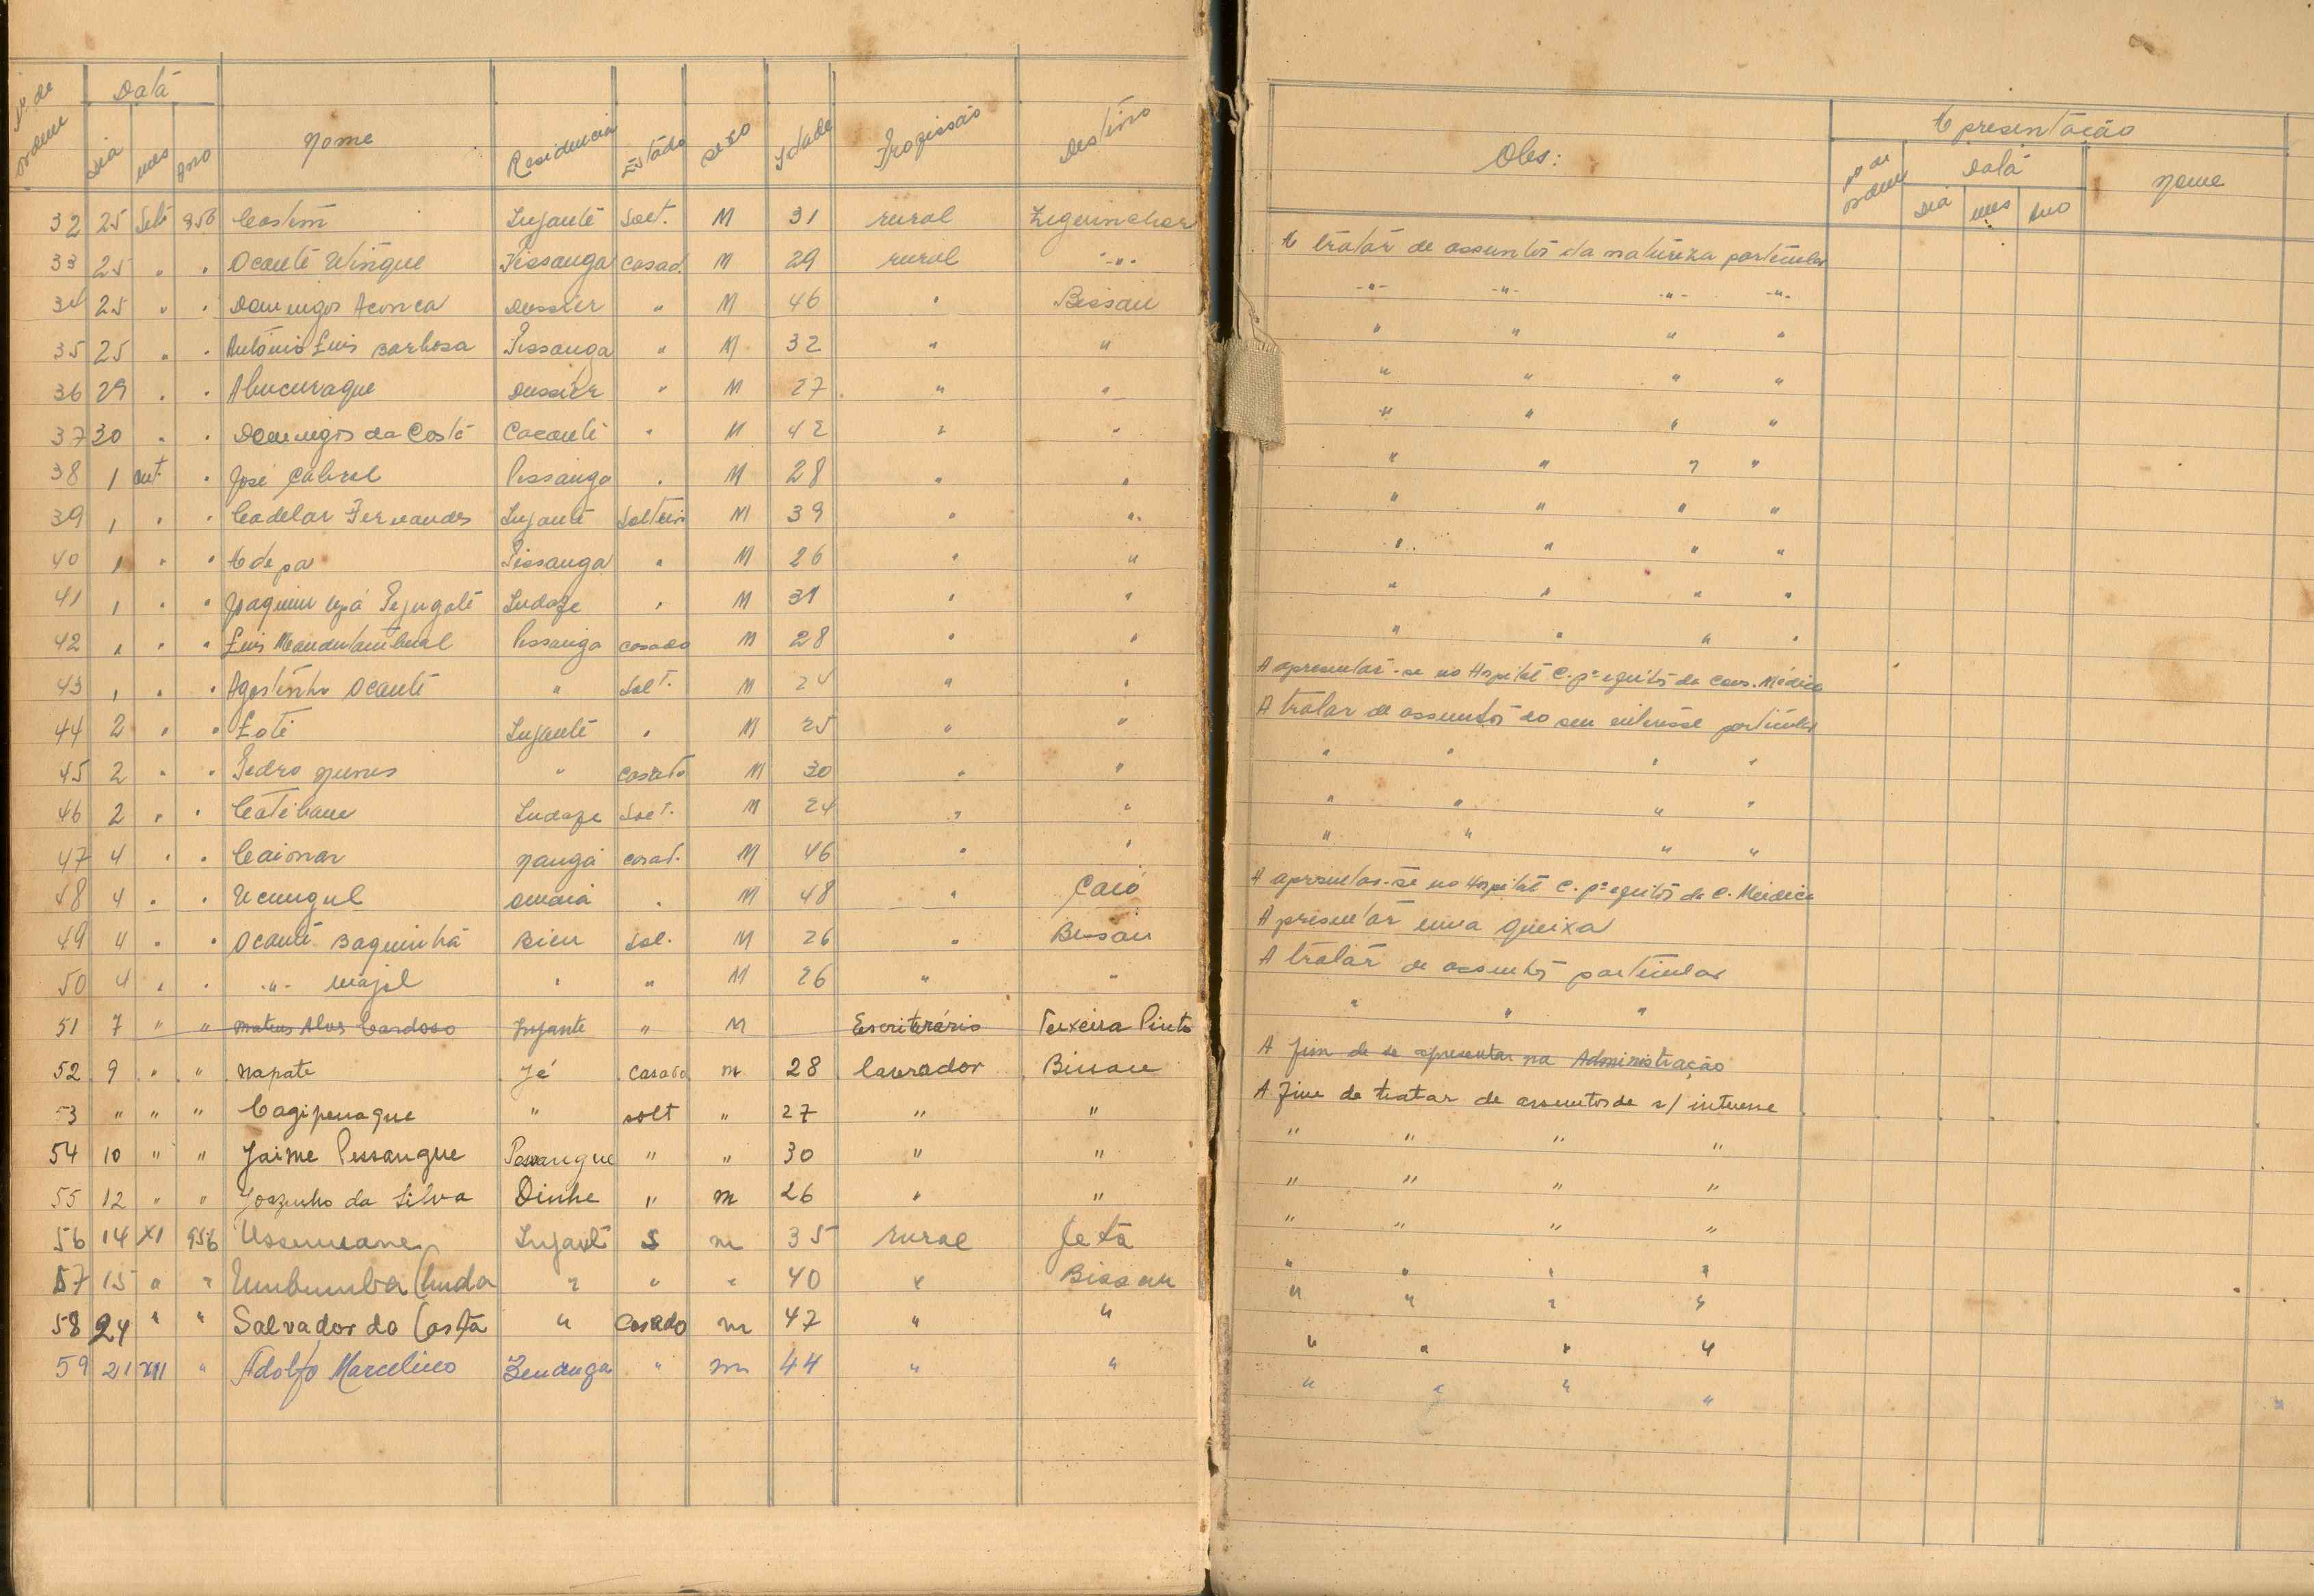 Nº de ordem Data Nome Residencia Estado sexo Idade Profissão Destino
Dia mes Ano
32 25 Set 956 Costem Lujante Solt. M 31 rural Ziguinchor
33 25 " " Ocante Utingue Pissanga casad. M 29 rural -"-
34 25 " " Domingos Aconca Dossier " M 46 " Bissau
35 25 " " António Luis Barbosa Pissanga " M 32 " "
36 29 " " Abucuraque Dussier " M 27 " "
37 30 " " Domingos da Costa Cacante " M 42 " "
38 1 out. " José Cabral Pissanga " M 28 " "
39 1 " " Cadelar Fernandes Lujante Solteiro M 39 " "
40 1 " " Adepa Pissanga " M 26 " "
41 1 " " Joaquim Ludaze " M 31 " "
42 1 " " Luis Pissanga casado M 28 " "
43 1 " " Agostinho Ocante " Solt. M 24 " "
44 2 " " Loti Lujante " M 25 " "
45 2 " " Pedro Nunes " casado M 30 " "
46 2 " " Catibane Ludaze Solt. M 24 " "
47 4 " " Caimar Nanga casad. M 46 " "
48 4 " " Ucungul " M 48 " Caió
49 4 " " Ocante Baquinhã Bieu Sol. M 26 " Bissau
50 4 " " -"- Majol " " M 26 " "
51 7 " " Mateus Alves Cardoso Injante " M Escriturário Teixeira Pinto
52 9 " " Napate Jé casado m 28 lavrador Bissau
53 " " " Cagipenaque " solt " 27 " "
54 10 " " Jaime Pessangue Pessangue " " 30 " "
55 12 " " Joazinho da Silva Dinhe " m 26 " "
56 14 XI 956 Ussumane Lujant S m 35 rural Jeta
57 15 " " Umbumba Cunda " " " 40 " Bissau
58 24 " " Salvador da Costa " Casado m 47 " "
59 21 XII " Adolfo Marcelino Zenanga " m 44 " "
Obs: Apresentação
Nº de ordem Data Nome
Dia mes Ano
A tratar de assuntos da natureza particular
-"- -"- -"- -"-
" " " "
" " " "
" " " "
" " " "
" " " "
" " " "
" " " "
" " " "
A apresentar-se no Hospital C. pª efeitos de Cons. Médica
A tratar de assuntos do seu interesse particular
" " " "
" " " "
" " " "
A apresentar-se no Hospital C. pª efeitos de C. Médica
Apresentar uma queixa
A tratar de assuntos particular
" " "
A fim de se apresentar na Administração
A fim de tratar de assuntos de s/ interesse
" " " "
" " " "
" " " "
" " " "
" " " "
" " " "
" " " "